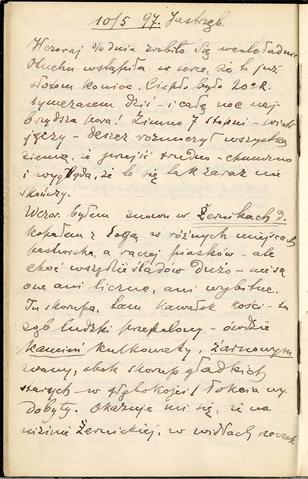 10/5 97. Jastrzęb.
Wczoraj z południa zrobiło się wcale ładnie
Otucha wstąpiła w serce, że to już
słotom koniec. Ciepło było 20°R.
tymczasem dziś – i całą noc naj-
brzydsza pora! Zimno 7 stopni – wiatr
jęczy – deszcz rozmoczył wszystką
ziemię, że przejść trudno – chmurno
i wygląda, że to się tak zaraz nie
skończy.
Wczor. byłem znowu w Żernikach D.
Kopałem z sogą w różnych miejscach
pastwiska, a raczej piasków – ale
choć wszędzie śladów dużo – nie są
one ani liczne, ani wybitne.
Tu skorupa, tam kawałek kości –
ząb ludzki przepalony – ówdzie
kamień kulkowaty, żarnowym
zwany, obok skorup gładkich
starych – w głębokości 1 łokcia wy
dobyty. Okazuje mi się, że na
nizinie Żernickiej, w widłach rzeczek